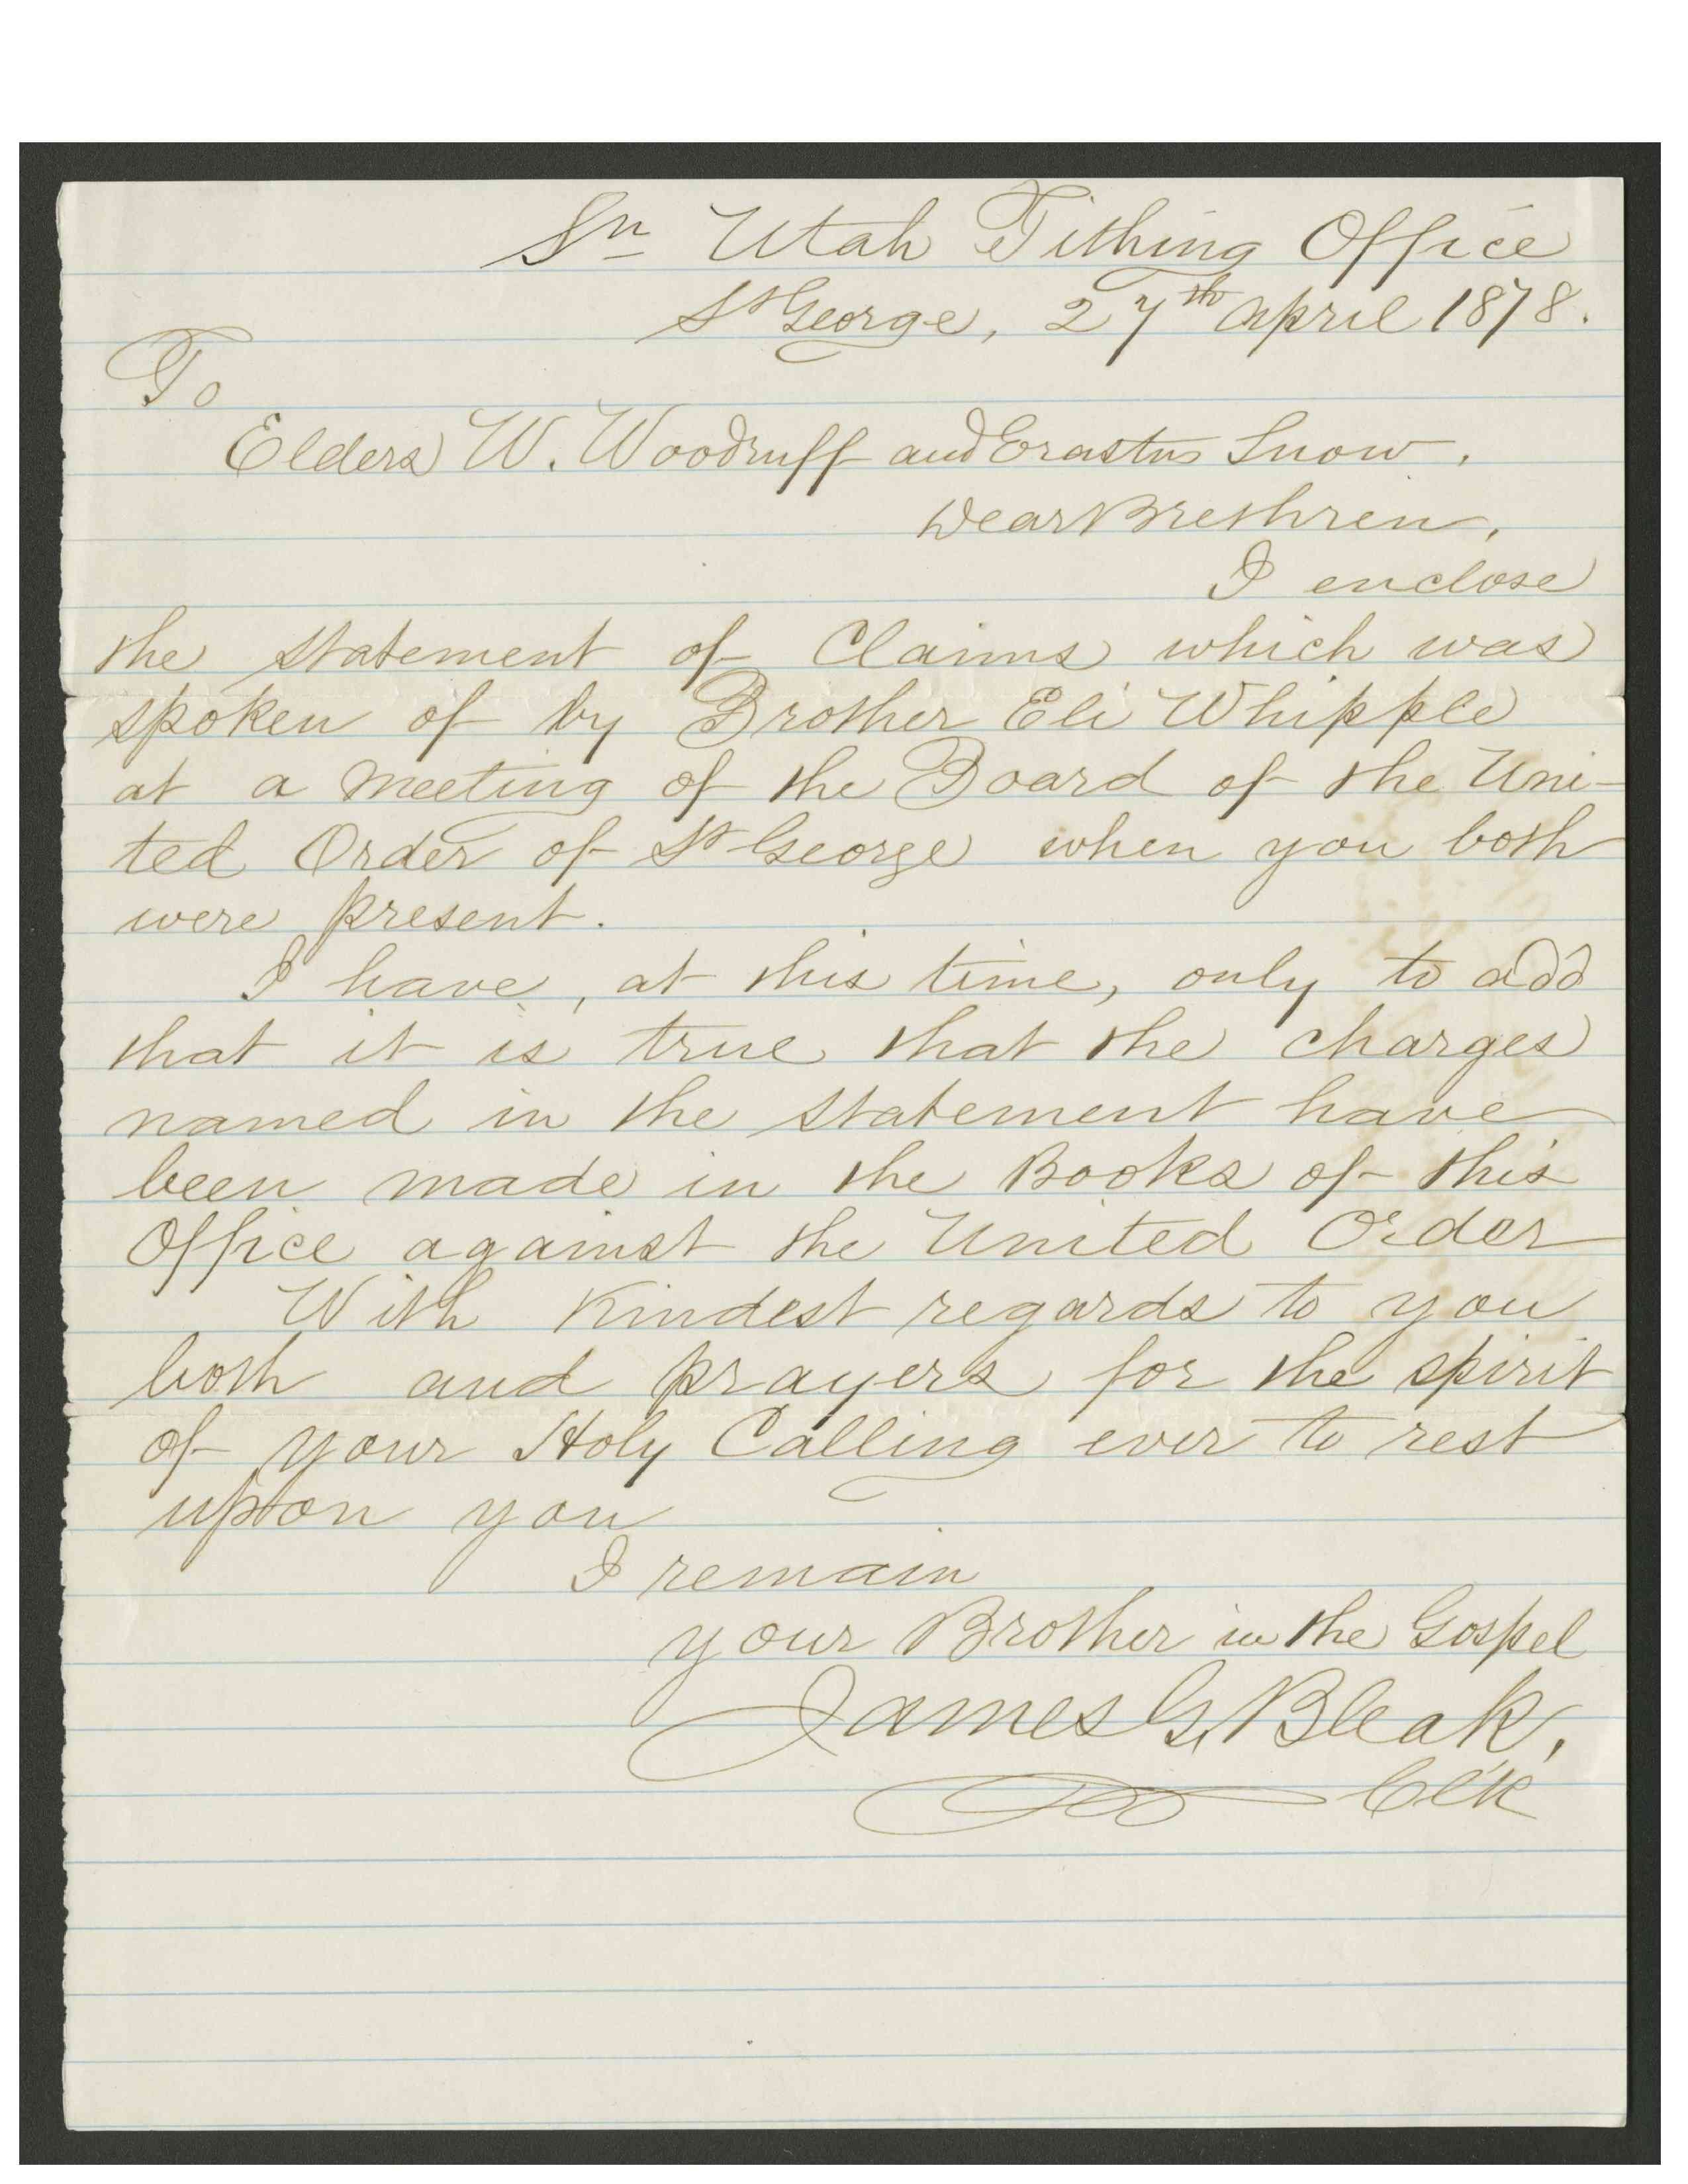 Sn Utah Tithing Office
St George, 27th april 1878.
To
Elders W. Woodruff and Erastus Snow.
Dear Brethren,
I enclose
the statement of Claims which was
spoken of by Brother Eli Whipple
at a meeting of the Board of the Uni-
ted Order of St George when you both
were present.
I have, at this time, only to add
that it is true that the charges
named in the statement have
been made in the Books of this
Office against the United Order
With Kindest regards to you
both and prayers for the spirit
of your Holy Calling ever to rest
upon you
I remain
your Brother in the Gospel
James G. Bleak,
Cl'k